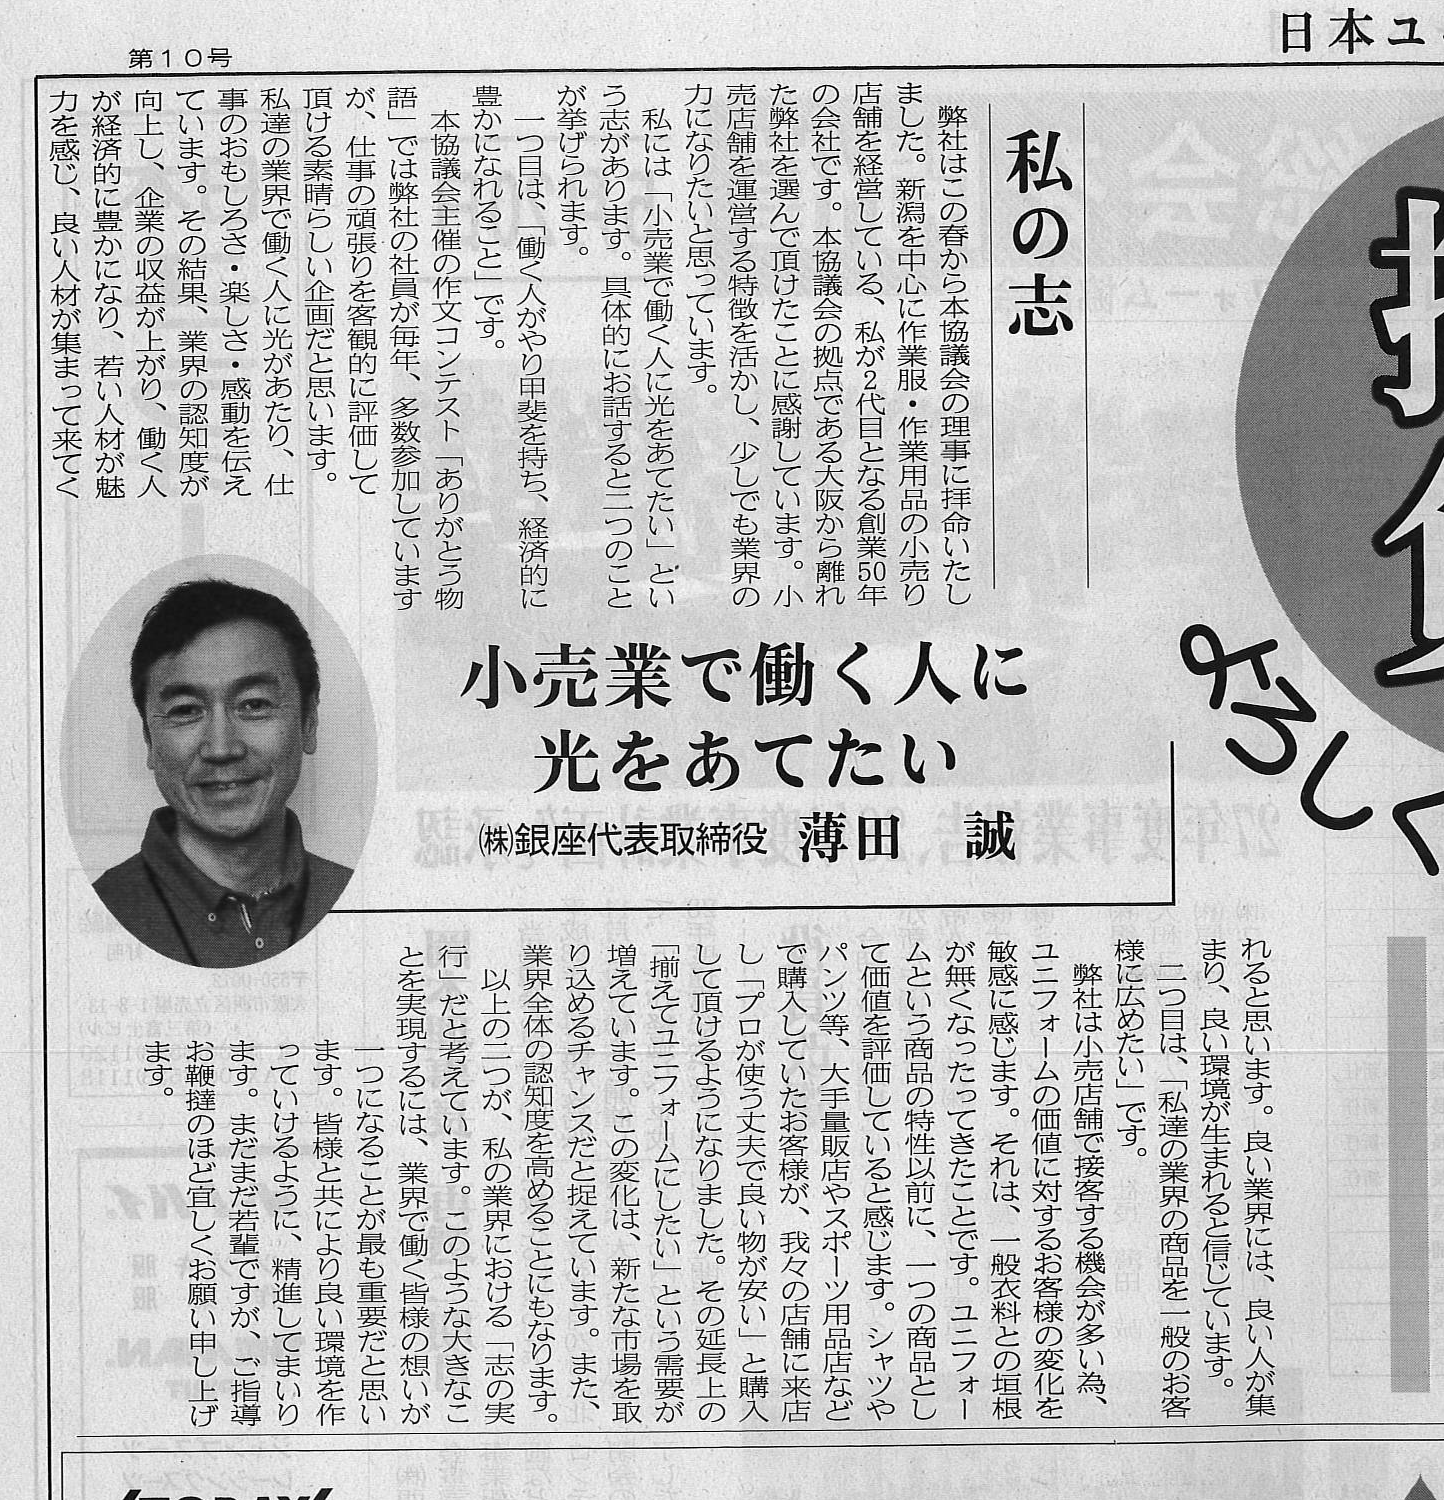 第１０号
日本ユ
私の志
弊社はこの春から本協議会の理事に拝命いたし
ました。新潟を中心に作業服・作業用品の小売り
店舗を経営している、私が2代目となる創業50年
の会社です。本協議会の拠点である大阪から離れ
た弊社を選んで頂けたことに感謝しています。小
売店舗を運営する特徴を活かし、少しでも業界の
力になりたいと思っています。
私には「小売業で働く人に光をあてたい」とい
う志があります。具体的にお話すると二つのこと
が挙げられます。
一つ目は、「働く人がやり甲斐を持ち、経済的に
豊かになれること」です。
本協議会主催の作文コンテスト「ありがとう物
語」では弊社の社員が毎年、多数参加しています
が、仕事の頑張りを客観的に評価して
頂ける素晴らしい企画だと思います。
私達の業界で働く人に光があたり、仕
事のおもしろさ・楽しさ・感動を伝え
ています。その結果、業界の認知度が
向上し、企業の収益が上がり、働く人
が経済的に豊かになり、若い人材が魅
力を感じ、良い人材が集まって来てく
小売業で働く人に
光をあてたい
㈱銀座代表取締役 薄田 誠
れると思います。良い業界には、良い人が集
まり、良い環境が生まれると信じています。
二つ目は、「私達の業界の商品を一般のお客
様に広めたい」です。
弊社は小売店舗で接客する機会が多い為、
ユニフォームの価値に対するお客様の変化を
敏感に感じます。それは、一般衣料との垣根
が無くなったってきたことです。ユニフォー
ムという商品の特性以前に、一つの商品とし
て価値を評価していると感じます。シャツや
パンツ等、大手量販店やスポーツ用品店など
で購入していたお客様が、我々の店舗に来店
し「プロが使う丈夫で良い物が安い」と購入
して頂けるようになりました。その延長上の
「揃えてユニフォームにしたい」という需要が
増えています。この変化は、新たな市場を取
り込めるチャンスだと捉えています。また、
業界全体の認知度を高めることにもなります。
以上の二つが、私の業界における「志の実
行」だと考えています。このような大きなこ
とを実現するには、業界で働く皆様の想いが
一つになることが最も重要だと思い
ます。皆様と共により良い環境を作
っていけるように、精進してまいり
ます。まだまだ若輩ですが、ご指導
お鞭撻のほど宜しくお願い申し上げ
ます。
よろしく
TODAY